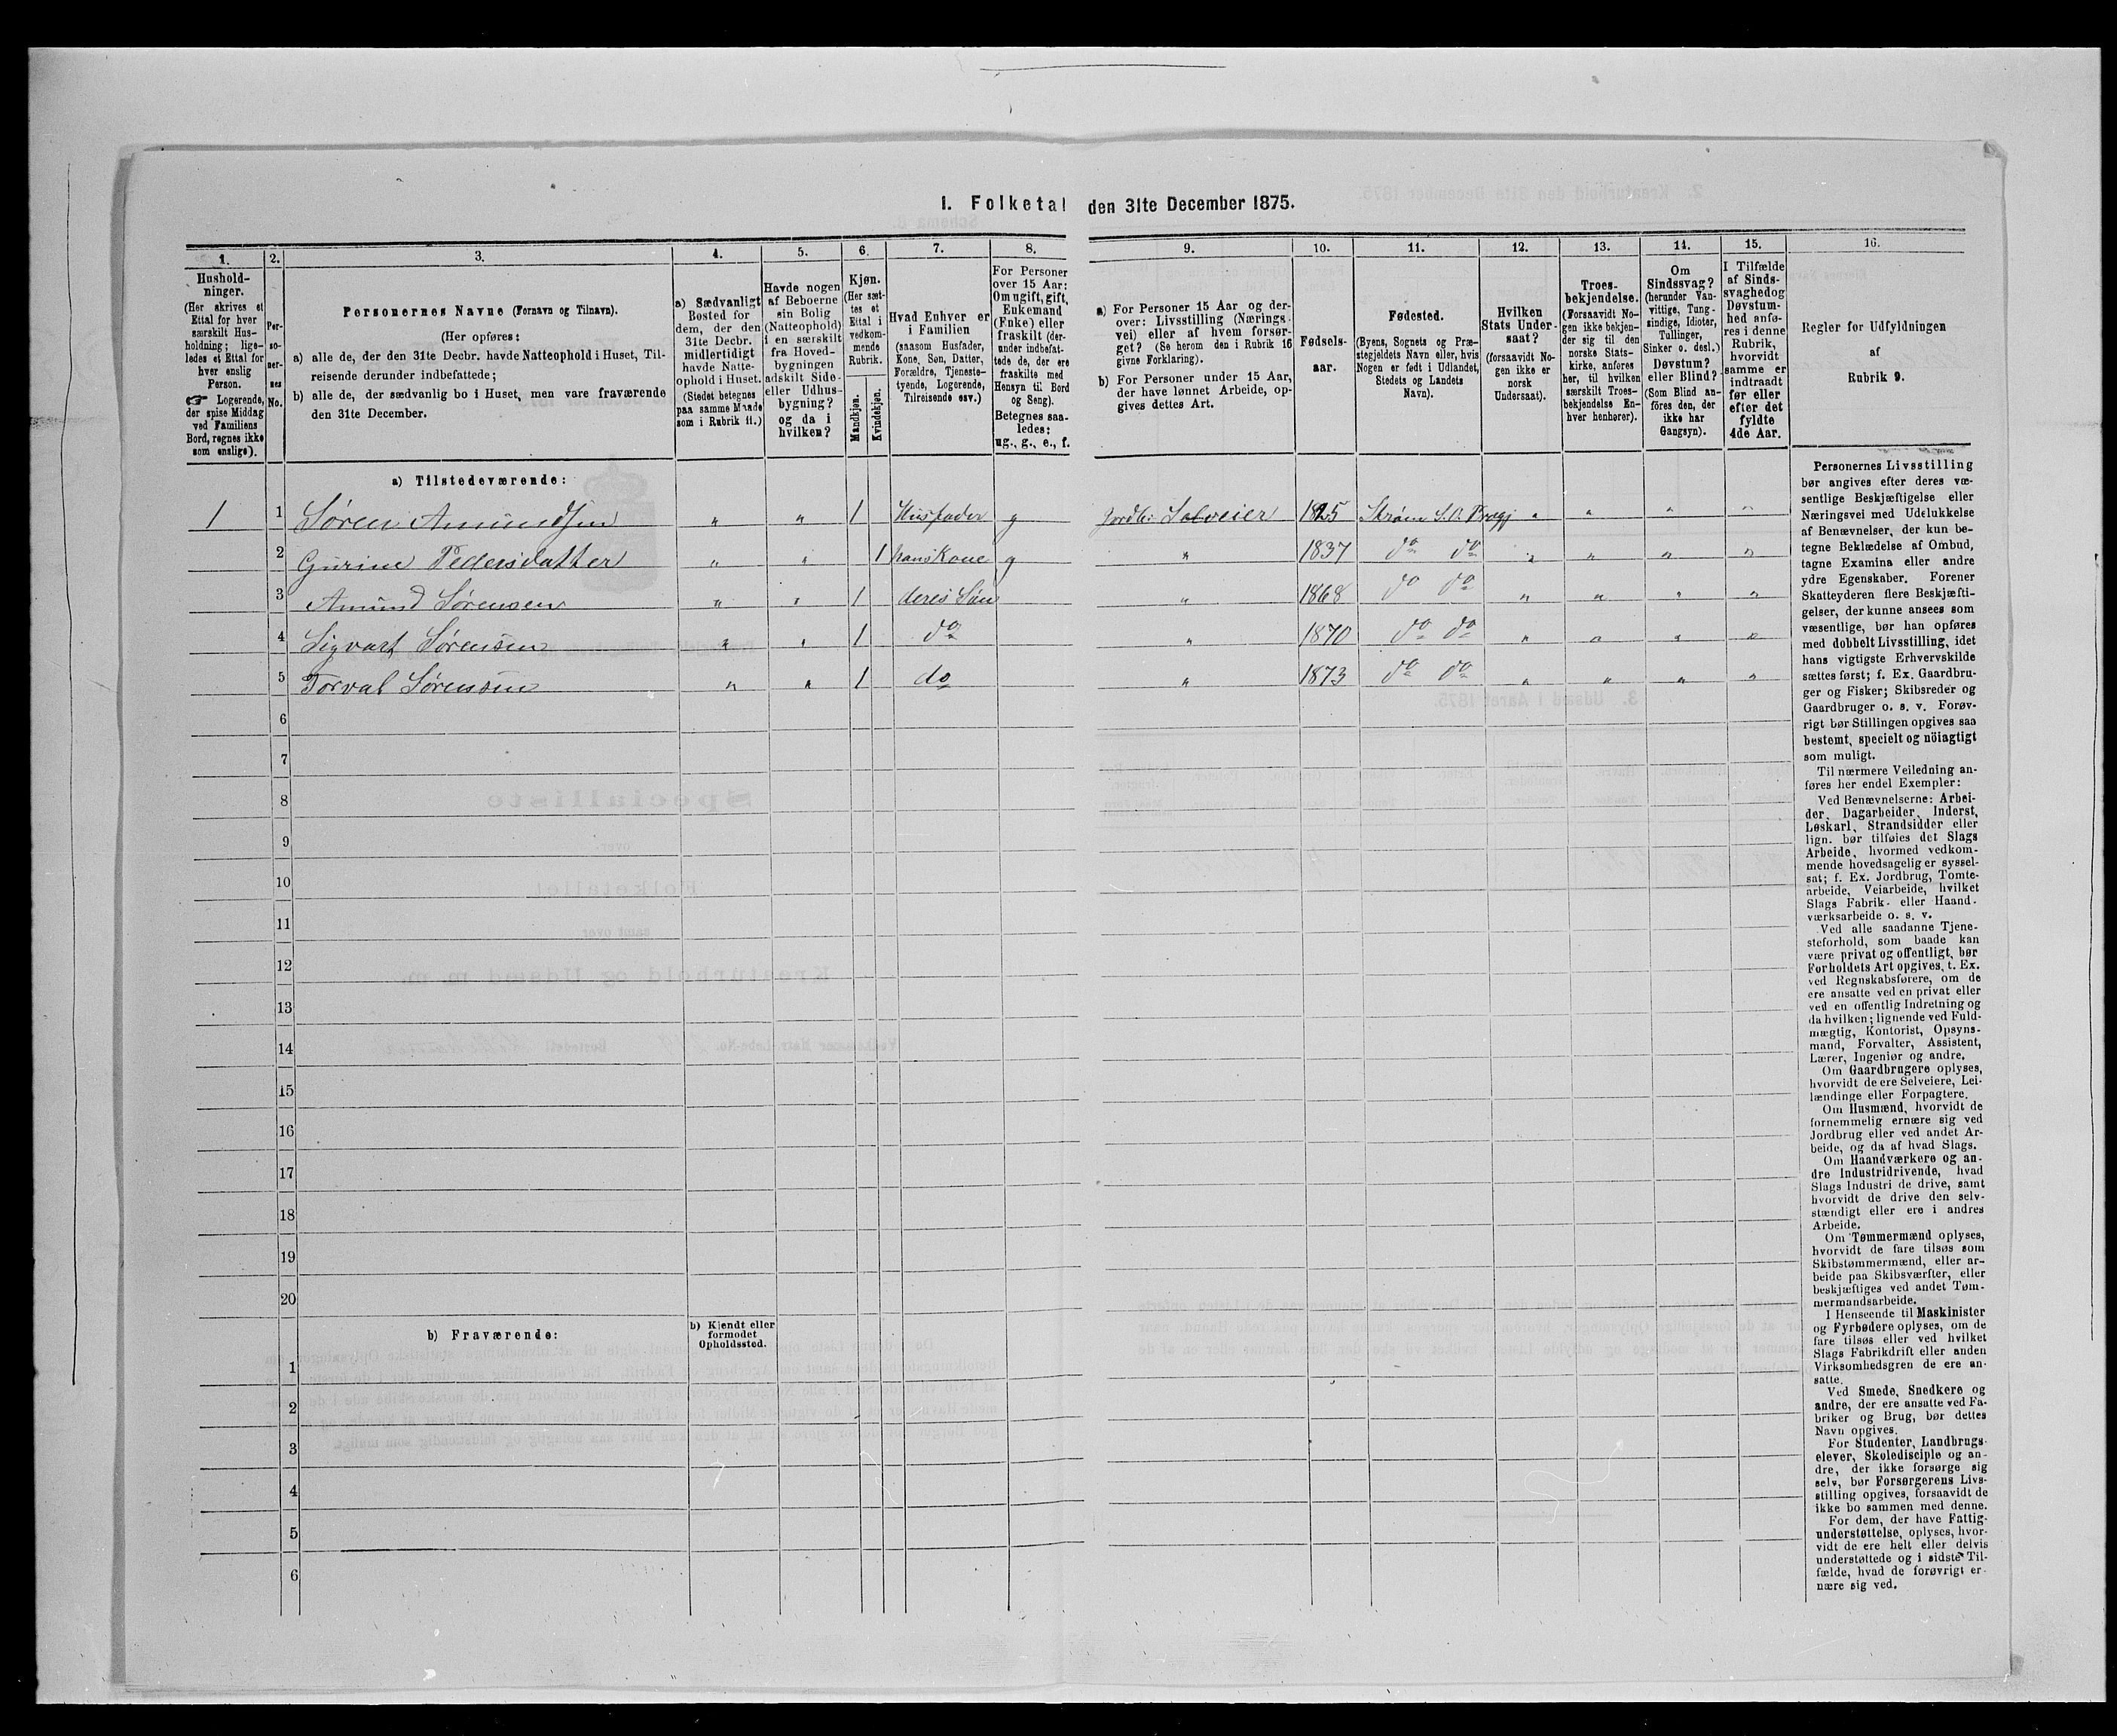 I. Folketal den 31te December 1875.
1. 2. 3. 4. 5. 6. 7. 8. 9. 10. 11. 12. 13. 14. 15. 16.
Hushold-
ninger.
(Her skrives et
Ettal for hver
særskilt Hus-
holdning; lige-
ledes et Ettal for
hver enslig
Person.
☞ Logerende,
der spise Middag
ved Familiens
Bord, regnes ikke
som enslige).
Per-
so-
ner-
nes
No.
Personernes Navne (Fornavn og Tilnavn).
(Her opføres:
a) alle de, der den 31te Decbr. havde Natteophold i Huset, Til-
reisende derunder indbefattede;
b) alle de, der sædvanlig bo i Huset, men vare fraværende
den 31te December.
a) Sædvanligt
Bosted for
dem, der den
31te Decbr.
midlertidigt
havde Natte-
ophold i Huset.
(Stedet betegnes
paa samme Maade
som i Rubrik 11.)
Havde nogen
af Beboerne
sin Bolig
(Natteophold)
i en særskilt
fra Hoved-
bygningen
adskilt Side-
eller Udhus-
bygning?
og da i
hvilken?
Kjøn.
(Her sæt-
tes et
Ettal i
vedkom-
mende
Rubrik.
Mandkjøn.
Kvindekjøn.
Hvad Enhver er
i Familien
(saasom Husfader,
Kone, Søn, Datter,
Forældre, Tjeneste-
tyende, Logerende,
Tilreisende osv.)
For Personer
over 15 Aar:
Om ugift, gift,
Enkemand
(Enke) eller
fraskilt (der-
under indbefat-
tede de, der ere
fraskilte med
Hensyn til Bord
og Seng).
Betegnes saa-
ledes:
ug., g., e., f.
a) For Personer 15 Aar og der-
over: Livsstilling (Nærings-
vei) eller af hvem forsør-
get? (Se herom den i Rubrik 16
givne Forklaring).
b) For Personer under 15 Aar,
der have lønnet Arbeide, op-
gives dettes Art.
Fødsels-
aar.
Fødested.
(Byens, Sognets og Præ-
stegjeldets Navn eller, hvis
Nogen er født i Udlandet,
Stedets og Landets
Navn).
Hvilken
Stats Under-
saat?
(forsaavidt No-
gen ikke er
norsk
Undersaat).
Troes-
bekjendelse.
(Forsaavidt No-
gen ikke bekjen-
der sig til den
norske Stats-
kirke, anføres
her, til hvilken
særskilt Troes-
bekjendelse En-
hver henhører).
Om
Sindssvag?
(herunder Van-
vittige, Tung-
sindige, Idioter,
Tullinger,
Sinker o. desl.)
Døvstum?
eller Blind?
(Som Blind an-
føres den, der
ikke har
Gangsyn).
I Tilfælde
af Sinds-
svaghed og
Døvstum-
hed anfø-
res i denne
Rubrik,
hvorvidt
samme er
indtraadt
før eller
efter det
fyldte
4de Aar.
Regler for Udfyldningen
af
Rubrik 9.
a) Tilstedeværende:
1 1 Søren Amundsen " " 1 Husfader g Jordbr. Selveier 1825 Strøm S. O. Præstgj " " " "
2 Gurine Pedersdatter " " 1 hans Kone g " 1837 do do " " " "
3 Amund Sørensen " " 1 deres Søn " 1868 do do " " " "
4 Sigvart Sørensen " " 1 do " 1870 do do " " " "
5 Torval Sørensen " " 1 do " 1873 do do " " " "
6
7
8
9
10
11
12
13
14
15
16
17
18
19
20
b) Fraværende:
b) Kjendt eller
formodet
Opholdssted.
1
2
3
4
5
6
Personernes Livsstilling
bør angives efter deres væ-
sentlige Beskjæftigelse eller
Næringsvei med Udelukkelse
af Benævnelser, der kun be-
tegne Beklædelse af Ombud,
tagne Examina eller andre
ydre Egenskaber. Forener
Skatteyderen flere Beskjæfti-
gelser, der kunne ansees som
væsentlige, bør han opføres
med dobbelt Livsstilling, idet
hans vigtigste Erhvervskilde
sættes først; f. Ex. Gaardbru-
ger og Fisker; Skibsreder og
Gaardbruger o. s. v. Forøv-
rigt bør Stillingen opgives saa
bestemt, specielt og nöiagtigt
som muligt.
Til nærmere Veiledning an-
føres her endel Exempler:
Ved Benævnelserne: Arbei-
der, Dagarbeider, Inderst,
Løskarl, Strandsidder eller
lign. bør tilføies det Slags
Arbeide, hvormed vedkom-
mende hovedsagelig er syssel-
sat; f. Ex. Jordbrug, Tomte-
arbeide, Veiarbeide, hvilket
Slags Fabrik- eller Haand-
værksarbeide o. s. v.
Ved alle saadanne Tjene-
steforhold, som baade kan
være privat og offentligt, bør
Forholdets Art opgives, t. Ex.
ved Regnskabsførere, om de
ere ansatte ved en privat eller
ved en offentlig Indretning og
da hvilken; lignende ved Fuld-
mægtig, Kontorist, Opsyns-
mand, Forvalter, Assistent,
Lærer, Ingeniør og andre.
Om Gaardbrugere oplyses,
hvorvidt de ere Selveiere, Lei-
lændinge eller Forpagtere.
Om Husmænd, hvorvidt de
fornemmelig ernære sig ved
Jordbrug eller ved andet Ar-
beide, og da af hvad Slags.
Om Haandværkere og an-
dre Industridrivende, hvad
Slags Industri de drive, samt
hvorvidt de drive den selv-
stændigt eller ere i andres
Arbeide.
Om Tømmermænd oplyses,
hvorvidt de fare tilsøs som
Skibstømmermænd, eller ar-
beide paa Skibsværfter, eller
beskjæftiges ved andet Tøm-
mermandsarbeide.
I Henseende til Maskinister
og Fyrbødere oplyses, om de
fare tilsøs eller ved hvilket
Slags Fabrikdrift eller anden
Virksomhedsgren de ere an-
satte.
Ved Smede, Snedkere og
andre, der ere ansatte ved Fa-
briker og Brug, bør dettes
Navn opgives.
For Studenter, Landbrugs-
elever, Skoledisciple og an-
dre, der ikke forsørge sig
selv, bør Forsørgerens Livs-
stilling opgives, forsaavidt de
ikke bo sammen med denne.
For dem, der have Fattig-
understøttelse, oplyses, hvor-
vidt de ere helt eller delvis
understøttede og i sidste Til-
fælde, hvad de forøvrigt er-
nære sig ved.